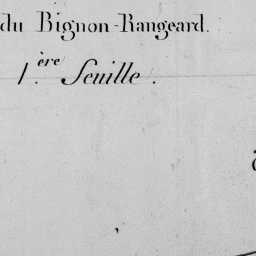 du Bignon-Rangeard.
1.ère Feuille.